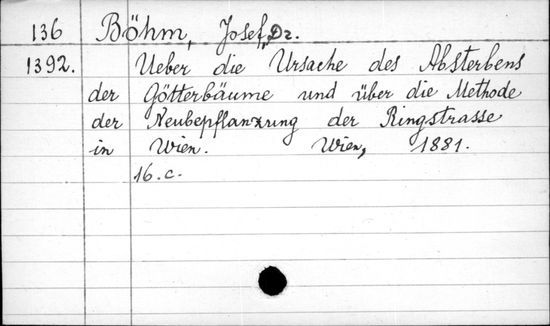 136 Böhm, Josef, Dr.
1392. Ueber die Ursache des Absterbens
der Götterbäume und über die Methode
der Neubepflanzung der Ringstrasse
in Wien. Wien, 1881.
16. c.